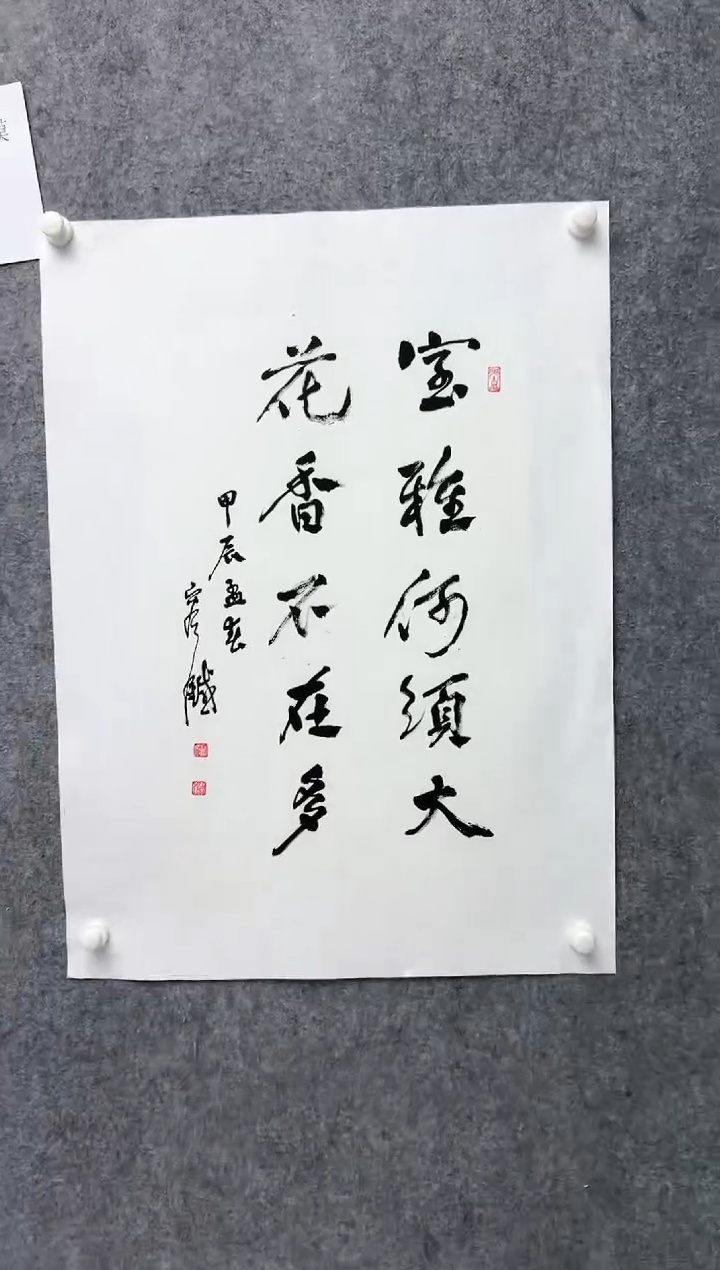 室雅何須大
花香不在多
甲辰孟春